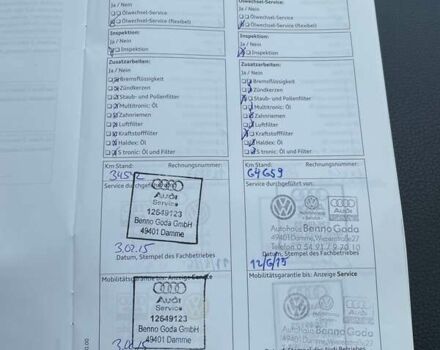 Ja / Nein
Ölwechsel-Service
Ölwechsel-Service (flexibel)
Inspektion:
Ja / Nein
Inspektion
Zusatzarbeiten:
Ja / Nein
Bremsflüssigkeit
Zündkerzen
Staub- und Pollenfilter
Multitronic: Öl
Zahnriemen
Luftfilter
Kraftstofffilter
Haldex: Öl
S tronic: Öl und Filter
Km Stand:
Rechnungsnummer:
Service durchgeführt
Audi
Service
12649123
Benno Goda GmbH
49401 Damme
3.02.15
Datum, Stempel des Fachbetriebes
Mobilitätsgarantie bis: Anzeige Service
Audi
Service
12649123
Benno Goda GmbH
49401 Damme
Ölwechsel-Service
Ölwechsel-Service (flexibel)
Inspektion:
Ja / Nein
Inspektion
Zusatzarbeiten:
Ja / Nein
Bremsflüssigkeit
Zündkerzen
Staub- und Pollenfilter
Multitronic: Öl
Zahnriemen
Luftfilter
Kraftstofffilter
Haldex: Öl
S tronic: Öl und Filter
Km Stand:
Rechnungsnummer:
64659
Service durchgeführt von:
Autohaus Benno Goda
49401 Damme,
Telefon 0 54 91 / 9 70 10
Datum, Stempel des Fachbetriebes
Mobilitätsgarantie bis: Anzeige Service